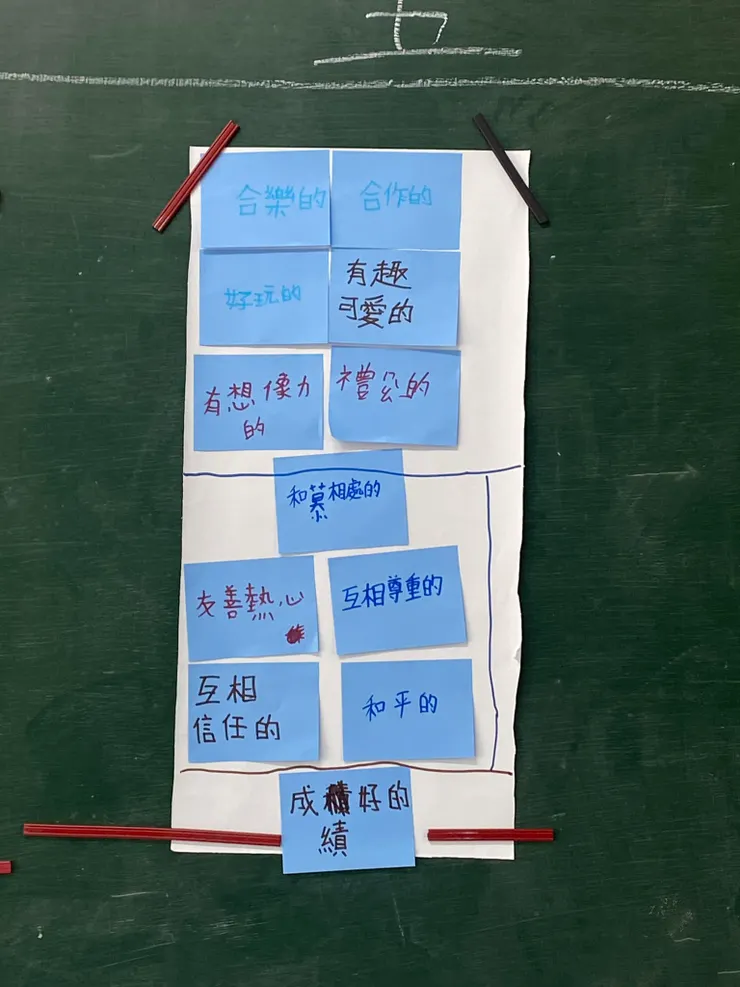 合樂的
合作的
好玩的
有趣
可愛的
有想像力
的
禮的
和慕相處的
友善熱心
互相尊重的
互相
信任的
和平的
成好的
績